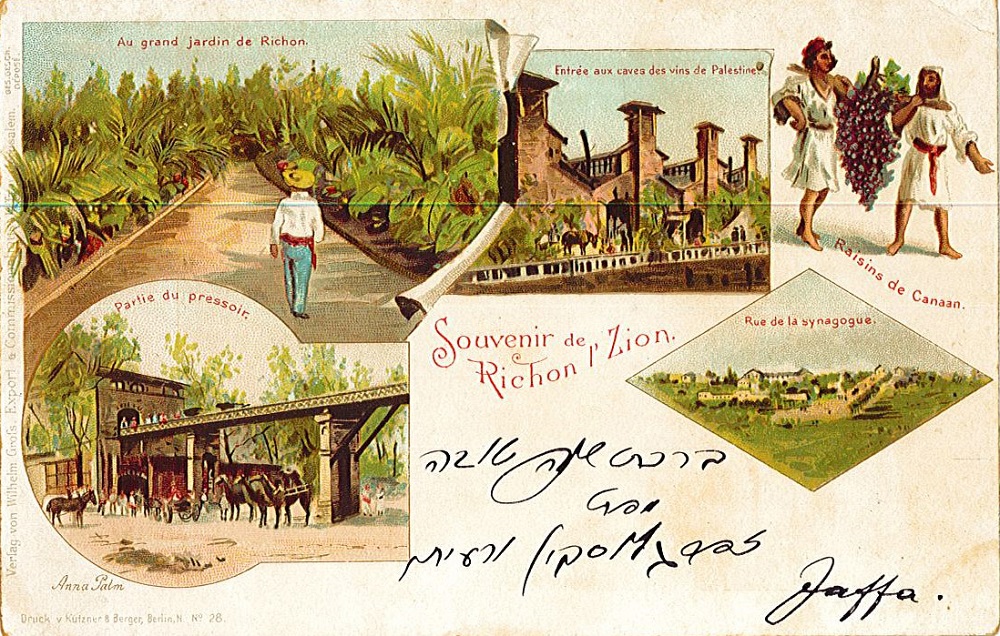 Au grand jardin de Richon.
Entrée aux caves des vins de Palestine.
Raisins de Canaan.
Partie du pressoir.
Souvenir de
Richon l'Zion.
Rue de la synagogue.
ברכת שנה טובה
ורעיתו
Jaffa.
Anna Palm
Druck v. Kützner & Berger, Berlin, N. Nº 28.
Verlag von Wilhelm Groß, Export & Commissionshaus, Jerusalem.
GES. GESCH.
DEPOSÉ.